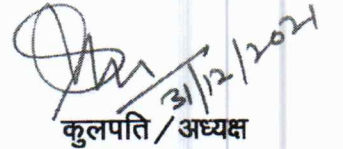 31/12/2021
कुलपति / अध्यक्ष